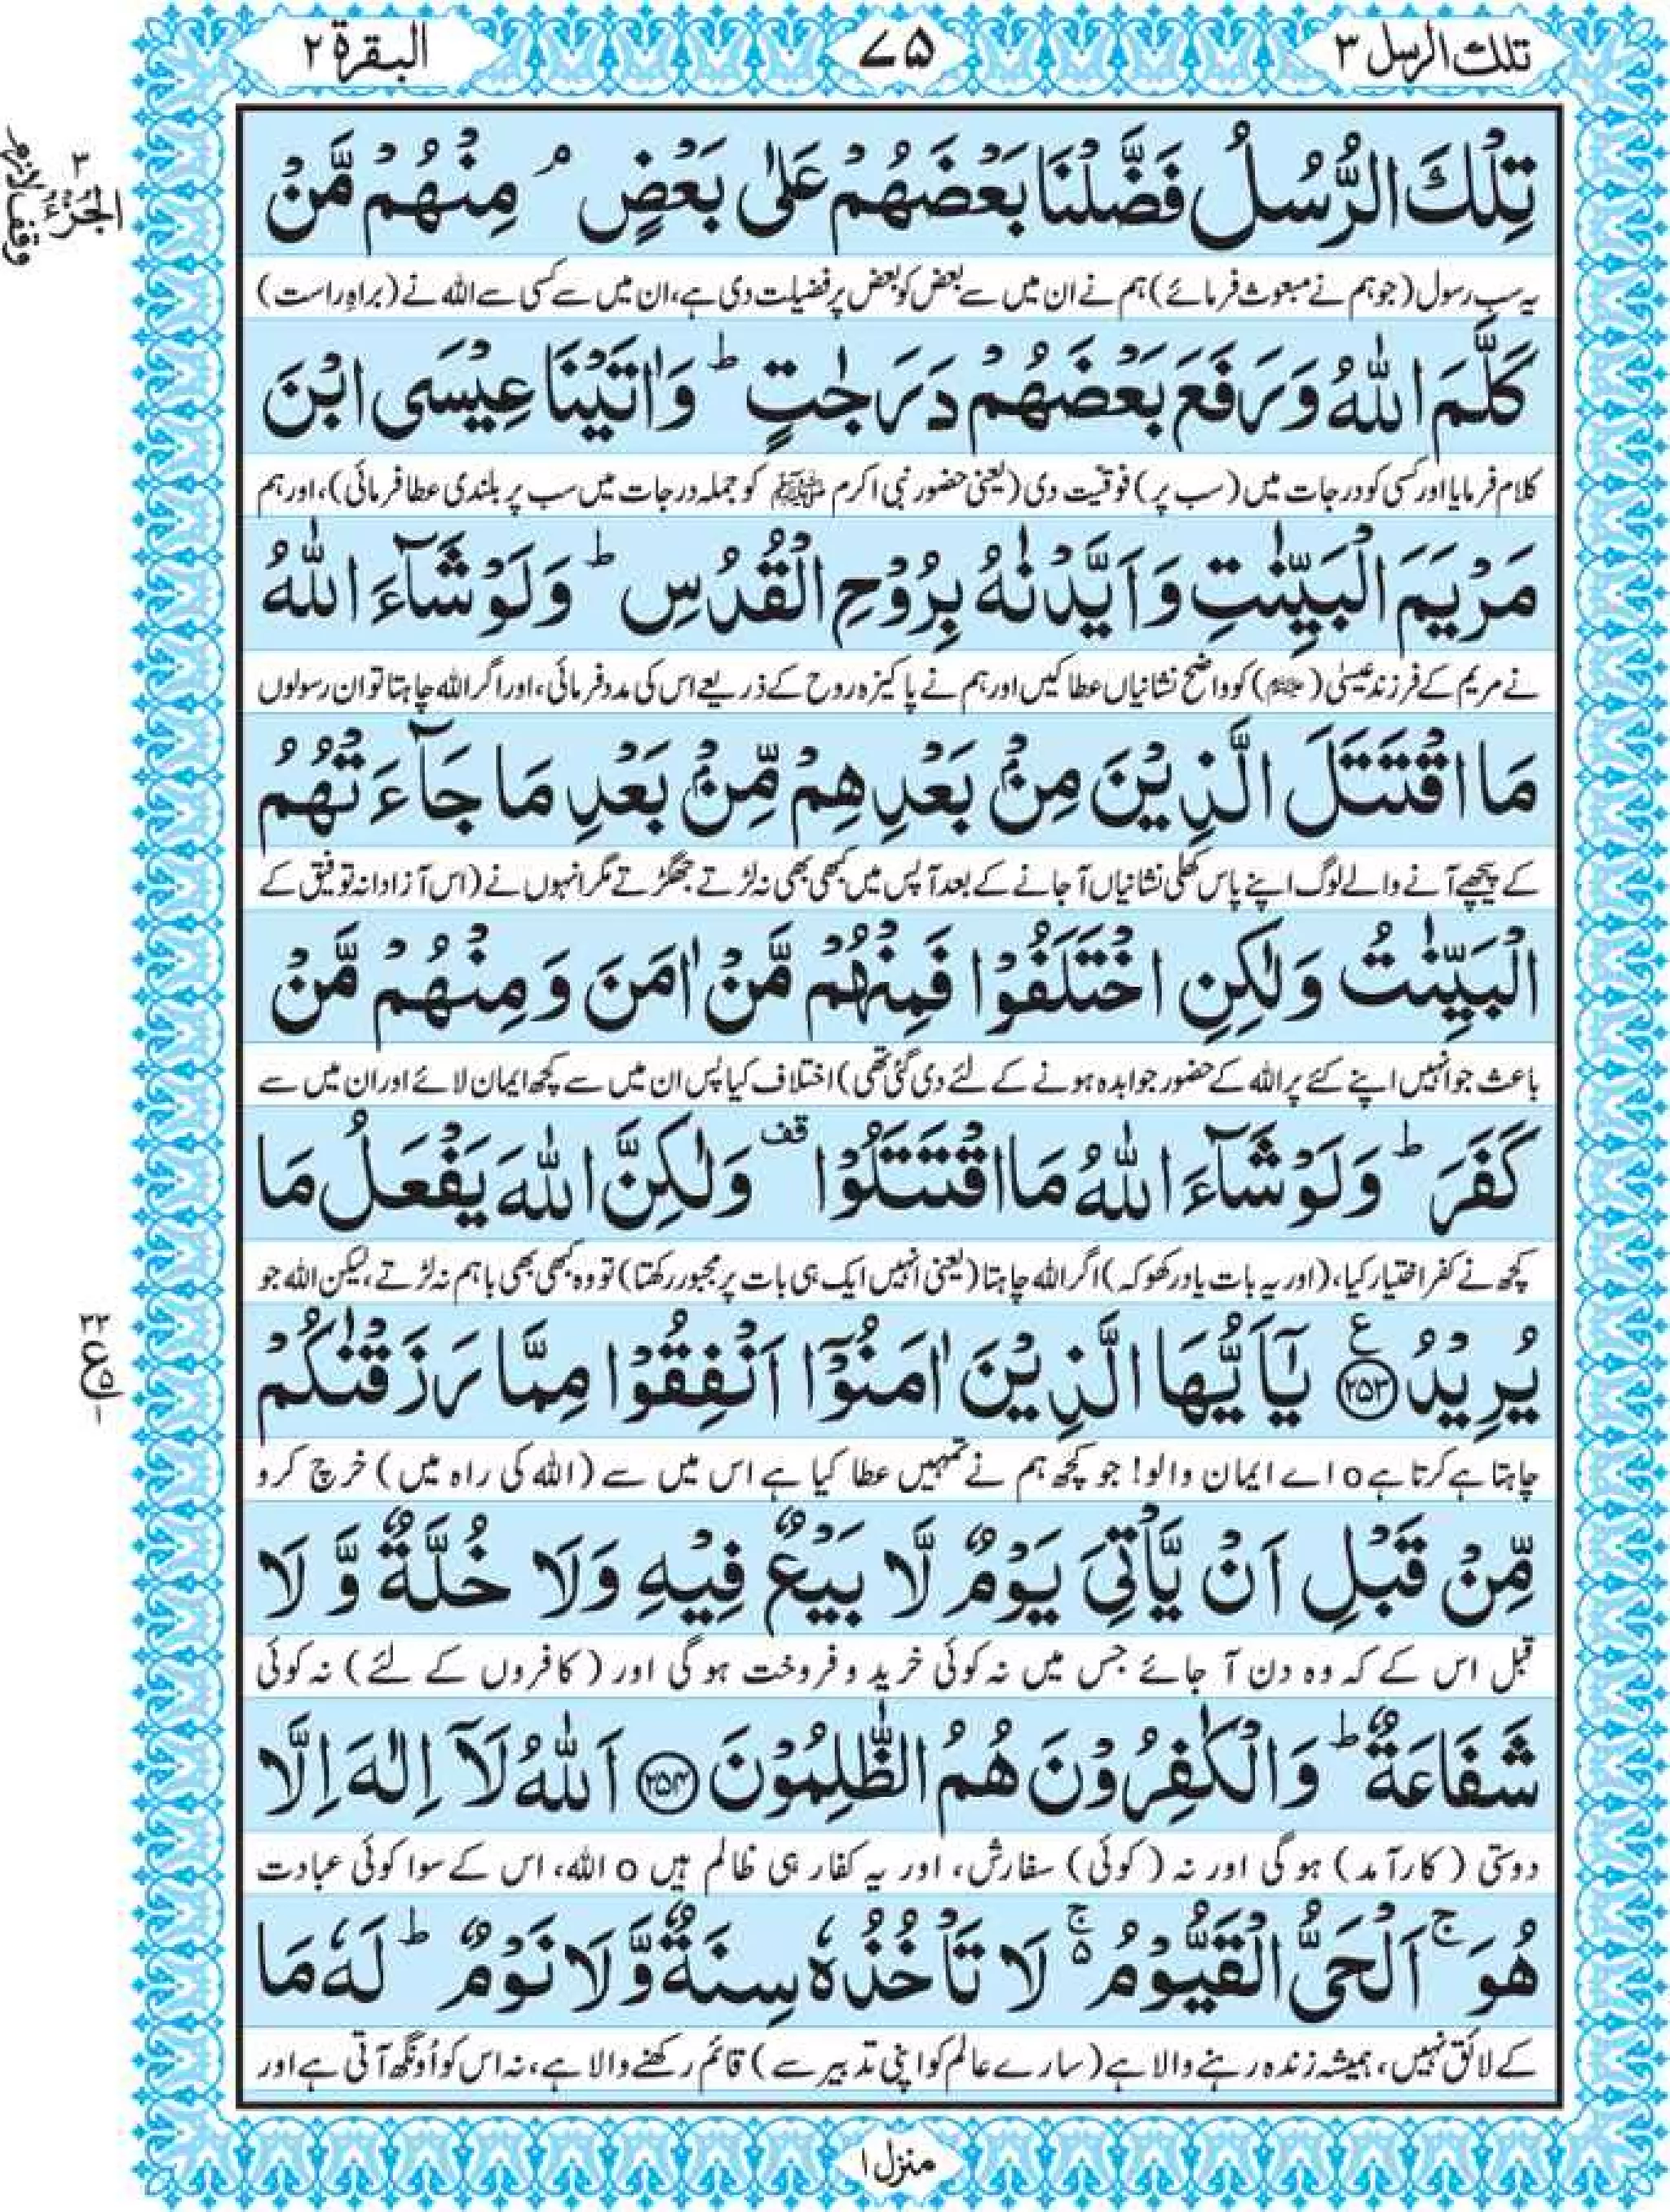 تلك الرسل ٣
٧٥
البقرة ٢
تِلْكَ الرُّسُلُ فَضَّلْنَا بَعْضَهُمْ عَلٰى بَعْضٍ ۘ مِنْهُمْ مَّنْ
یہ سب رسول (جو ہم نے مبعوث فرمائے) ہم نے ان میں سے بعض کو بعض پر فضیلت دی ہے، ان میں سے کسی سے اللہ نے (براہِ راست)
كَلَّمَ اللّٰهُ وَرَفَعَ بَعْضَهُمْ دَرَجٰتٍ ؕ وَاٰتَيْنَا عِيْسَى ابْنَ
کلام فرمایا اور کسی کو درجات میں (سب پر) فوقیت دی (یعنی حضور نبی اکرم ﷺ کو جملہ درجات میں سب پر بلندی عطا فرمائی)، اور ہم
مَرْيَمَ الْبَيِّنٰتِ وَاَيَّدْنٰهُ بِرُوْحِ الْقُدُسِ ؕ وَلَوْ شَآءَ اللّٰهُ
نے مریم کے فرزند عیسیٰ (علیہ السلام) کو واضح نشانیاں عطا کیں اور ہم نے پاکیزہ روح کے ذریعے اس کی مدد فرمائی، اور اگر اللہ چاہتا تو ان رسولوں
مَا اقْتَتَلَ الَّذِيْنَ مِنْۢ بَعْدِهِمْ مِّنْۢ بَعْدِ مَا جَآءَتْهُمُ
کے پیچھے آنے والے لوگ اپنے پاس کھلی نشانیاں آ جانے کے بعد آپس میں کبھی بھی نہ لڑتے جھگڑتے مگر انہوں نے (اس آزادانہ توفیق کے
الْبَيِّنٰتُ وَلٰكِنِ اخْتَلَفُوْا فَمِنْهُمْ مَّنْ اٰمَنَ وَمِنْهُمْ مَّنْ
باعث جو انہیں اپنے کئے پر اللہ کے حضور جوابدہ ہونے کے لئے دی گئی تھی) اختلاف کیا پس ان میں سے کچھ ایمان لائے اور ان میں سے
كَفَرَ ؕ وَلَوْ شَآءَ اللّٰهُ مَا اقْتَتَلُوْا قف وَلٰكِنَّ اللّٰهَ يَفْعَلُ مَا
کچھ نے کفر اختیار کیا، (اور یہ بات یاد رکھو کہ) اگر اللہ چاہتا (یعنی انہیں ایک ہی بات پر مجبور رکھتا) تو وہ کبھی بھی باہم نہ لڑتے، لیکن اللہ جو
يُرِيْدُ ﴿۲۵۳﴾ ع يٰۤاَيُّهَا الَّذِيْنَ اٰمَنُوْۤا اَنْفِقُوْا مِمَّا رَزَقْنٰكُمْ
چاہتا ہے کرتا ہے o اے ایمان والو! جو کچھ ہم نے تمہیں عطا کیا ہے اس میں سے (اللہ کی راہ میں) خرچ کرو
مِّنْ قَبْلِ اَنْ يَّاْتِيَ يَوْمٌ لَّا بَيْعٌ فِيْهِ وَلَا خُلَّةٌ وَّ لَا
قبل اس کے کہ وہ دن آ جائے جس میں نہ کوئی خرید و فروخت ہوگی اور (کافروں کے لئے) نہ کوئی
شَفَاعَةٌ ؕ وَالْكٰفِرُوْنَ هُمُ الظّٰلِمُوْنَ ﴿۲۵۴﴾ اَللّٰهُ لَاۤ اِلٰهَ اِلَّا
دوستی (کارآمد) ہوگی اور نہ (کوئی) سفارش، اور یہ کفار ہی ظالم ہیں o اللہ، اس کے سوا کوئی عبادت
هُوَ ۚ اَلْحَيُّ الْقَيُّوْمُ ۚ۬ لَا تَاْخُذُهٗ سِنَةٌ وَّلَا نَوْمٌ ؕ لَهٗ مَا
کے لائق نہیں، ہمیشہ زندہ رہنے والا ہے (سارے عالم کو اپنی تدبیر سے) قائم رکھنے والا ہے، نہ اس کو اُونگھ آتی ہے اور
منزل ۱
الجزء ٣
وقف لازم
٣٣
ع